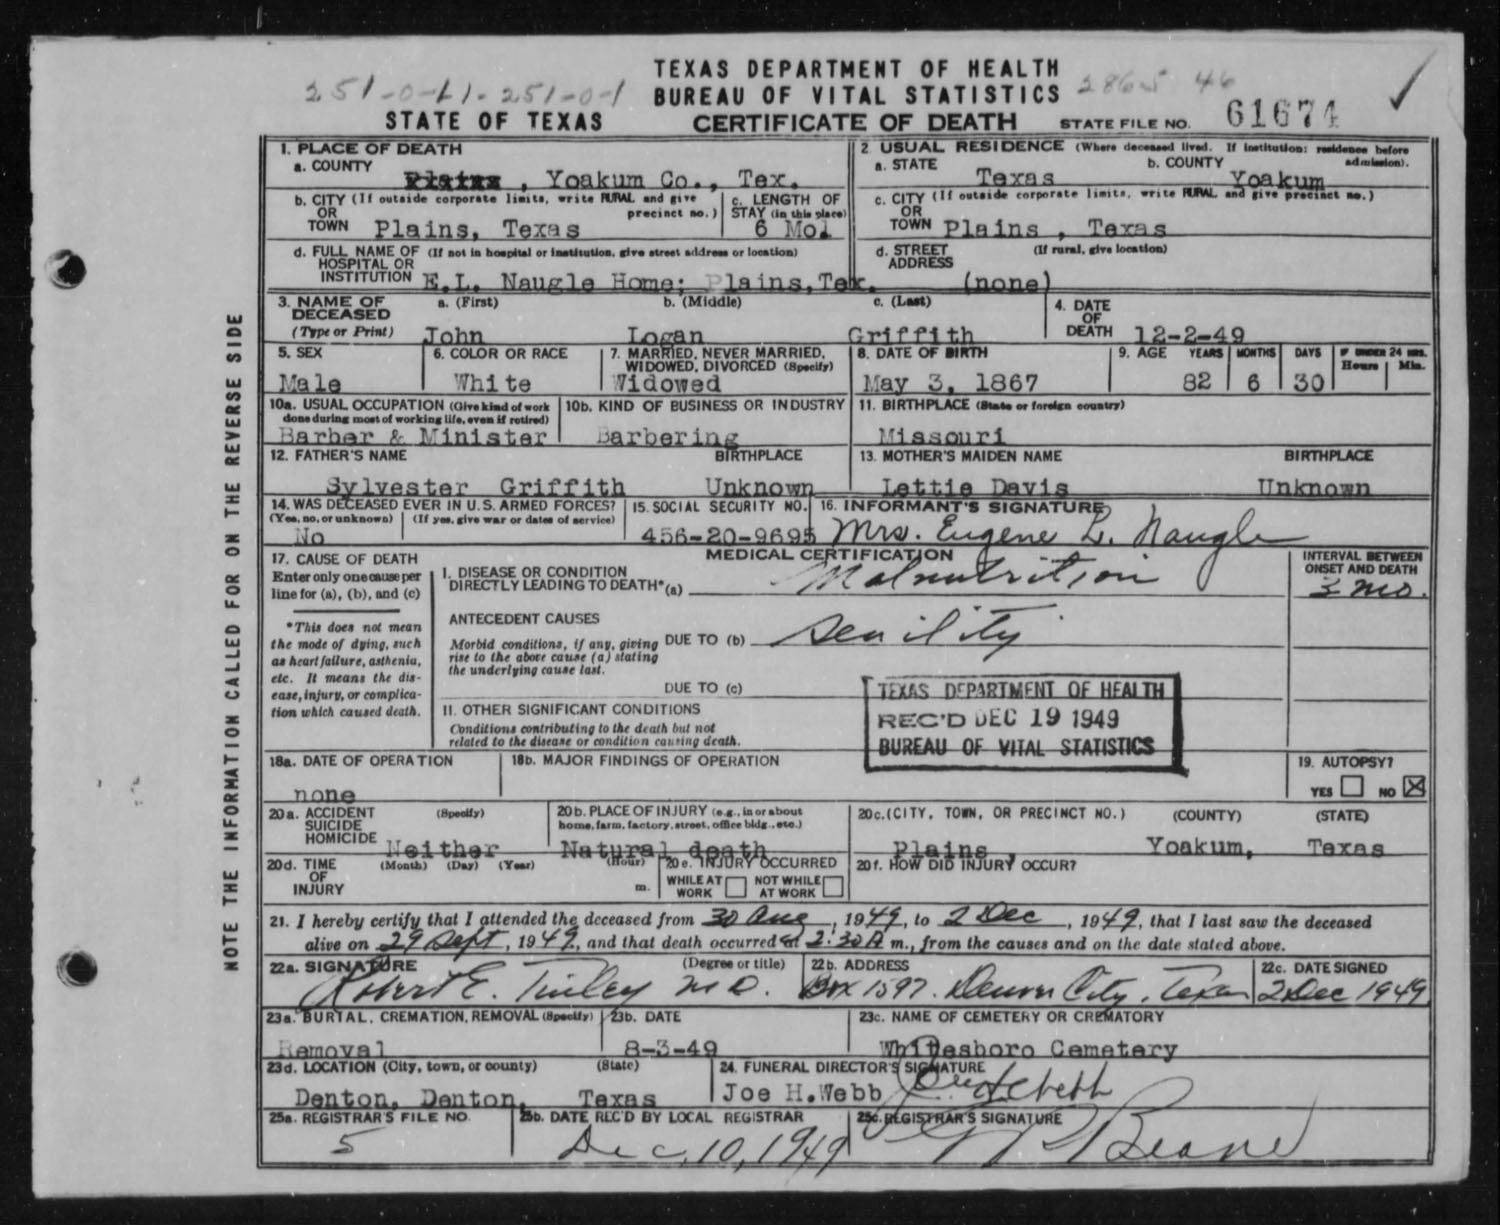 TEXAS DEPARTMENT OF HEALTH
BUREAU OF VITAL STATISTICS
251-0-11-251-0-1
2865 46
STATE OF TEXAS CERTIFICATE OF DEATH STATE FILE NO. 61674
NOTE THE INFORMATION CALLED FOR ON THE REVERSE SIDE
1. PLACE OF DEATH
a. COUNTY
Plains, Yoakum Co., Tex.
2. USUAL RESIDENCE (Where deceased lived. If institution: residence before admission).
a. STATE Texas
b. COUNTY Yoakum
b. CITY (If outside corporate limits, write RURAL and give precinct no.)
OR
TOWN Plains, Texas
c. LENGTH OF STAY (in this place)
6 Mol
c. CITY (If outside corporate limits, write RURAL and give precinct no.)
OR
TOWN Plains , Texas
d. FULL NAME OF (If not in hospital or institution, give street address or location)
HOSPITAL OR
INSTITUTION E.L. Naugle Home; Plains,Tex.
d. STREET ADDRESS (If rural, give location)
(none)
3. NAME OF DECEASED (Type or Print)
a. (First) John
b. (Middle) Logan
c. (Last) Griffith
4. DATE OF DEATH 12-2-49
5. SEX Male
6. COLOR OR RACE White
7. MARRIED, NEVER MARRIED, WIDOWED, DIVORCED (Specify) Widowed
8. DATE OF BIRTH May 3, 1867
9. AGE YEARS 82 MONTHS 6 DAYS 30 IF UNDER 24 HRS. Hours Min.
10a. USUAL OCCUPATION (Give kind of work done during most of working life, even if retired)
Barber & Minister
10b. KIND OF BUSINESS OR INDUSTRY
Barbering
11. BIRTHPLACE (State or foreign country)
Missouri
12. FATHER'S NAME BIRTHPLACE
Sylvester Griffith Unknown
13. MOTHER'S MAIDEN NAME BIRTHPLACE
Lettie Davis Unknown
14. WAS DECEASED EVER IN U.S. ARMED FORCES?
(Yes, no, or unknown) (If yes, give war or dates of service)
No
15. SOCIAL SECURITY NO.
456-20-9695
16. INFORMANT'S SIGNATURE
Mrs. Eugene L. Naugle
MEDICAL CERTIFICATION
17. CAUSE OF DEATH
Enter only one cause per line for (a), (b), and (c)
*This does not mean the mode of dying, such as heart failure, asthenia, etc. It means the disease, injury, or complication which caused death.
I. DISEASE OR CONDITION
DIRECTLY LEADING TO DEATH* (a) Malnutrition
INTERVAL BETWEEN ONSET AND DEATH
3 mo.
ANTECEDENT CAUSES
Morbid conditions, if any, giving rise to the above cause (a) stating the underlying cause last.
DUE TO (b) Senility
DUE TO (c)
TEXAS DEPARTMENT OF HEALTH
REC'D DEC 19 1949
BUREAU OF VITAL STATISTICS
II. OTHER SIGNIFICANT CONDITIONS
Conditions contributing to the death but not related to the disease or condition causing death.
18a. DATE OF OPERATION
none
18b. MAJOR FINDINGS OF OPERATION
19. AUTOPSY?
YES NO X
20a. ACCIDENT SUICIDE HOMICIDE (Specify)
Neither
20b. PLACE OF INJURY (e.g., in or about home, farm, factory, street, office bldg., etc.)
Natural death
20c. (CITY, TOWN, OR PRECINCT NO.) (COUNTY) (STATE)
Plains, Yoakum, Texas
20d. TIME OF INJURY (Month) (Day) (Year) (Hour) m.
20e. INJURY OCCURRED
WHILE AT WORK NOT WHILE AT WORK
20f. HOW DID INJURY OCCUR?
21. I hereby certify that I attended the deceased from 30 Aug, 1949, to 2 Dec, 1949, that I last saw the deceased
alive on 29 Sept, 1949, and that death occurred at 2:30 A m., from the causes and on the date stated above.
22a. SIGNATURE (Degree or title)
Robert E. Tinley M D.
22b. ADDRESS
Box 1597. Denver City, Texas
22c. DATE SIGNED
2 Dec 1949
23a. BURIAL, CREMATION, REMOVAL (Specify)
Removal
23b. DATE
8-3-49
23c. NAME OF CEMETERY OR CREMATORY
Whitesboro Cemetery
23d. LOCATION (City, town, or county) (State)
Denton, Denton, Texas
24. FUNERAL DIRECTOR'S SIGNATURE
Joe H.Webb
25a. REGISTRAR'S FILE NO.
5
25b. DATE REC'D BY LOCAL REGISTRAR
Dec, 10, 1949
25c. REGISTRAR'S SIGNATURE
Beane